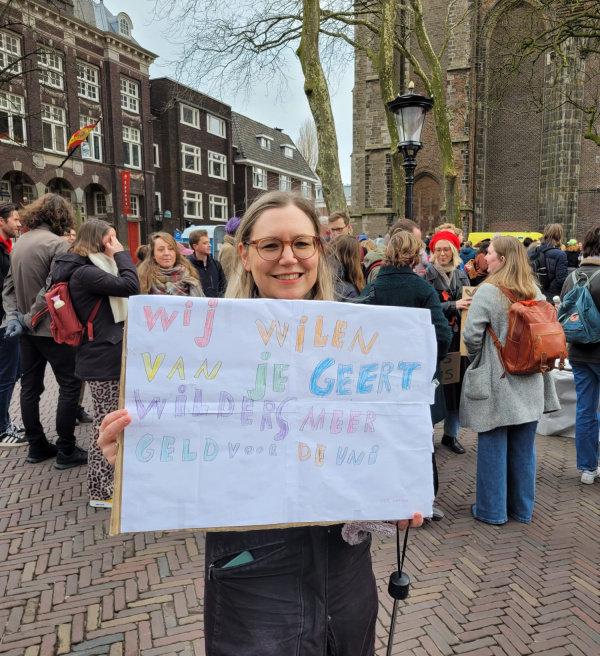 Wij WILEN
VAN je GEERT
WilDERS MEER
GELD VOOR DE UNi